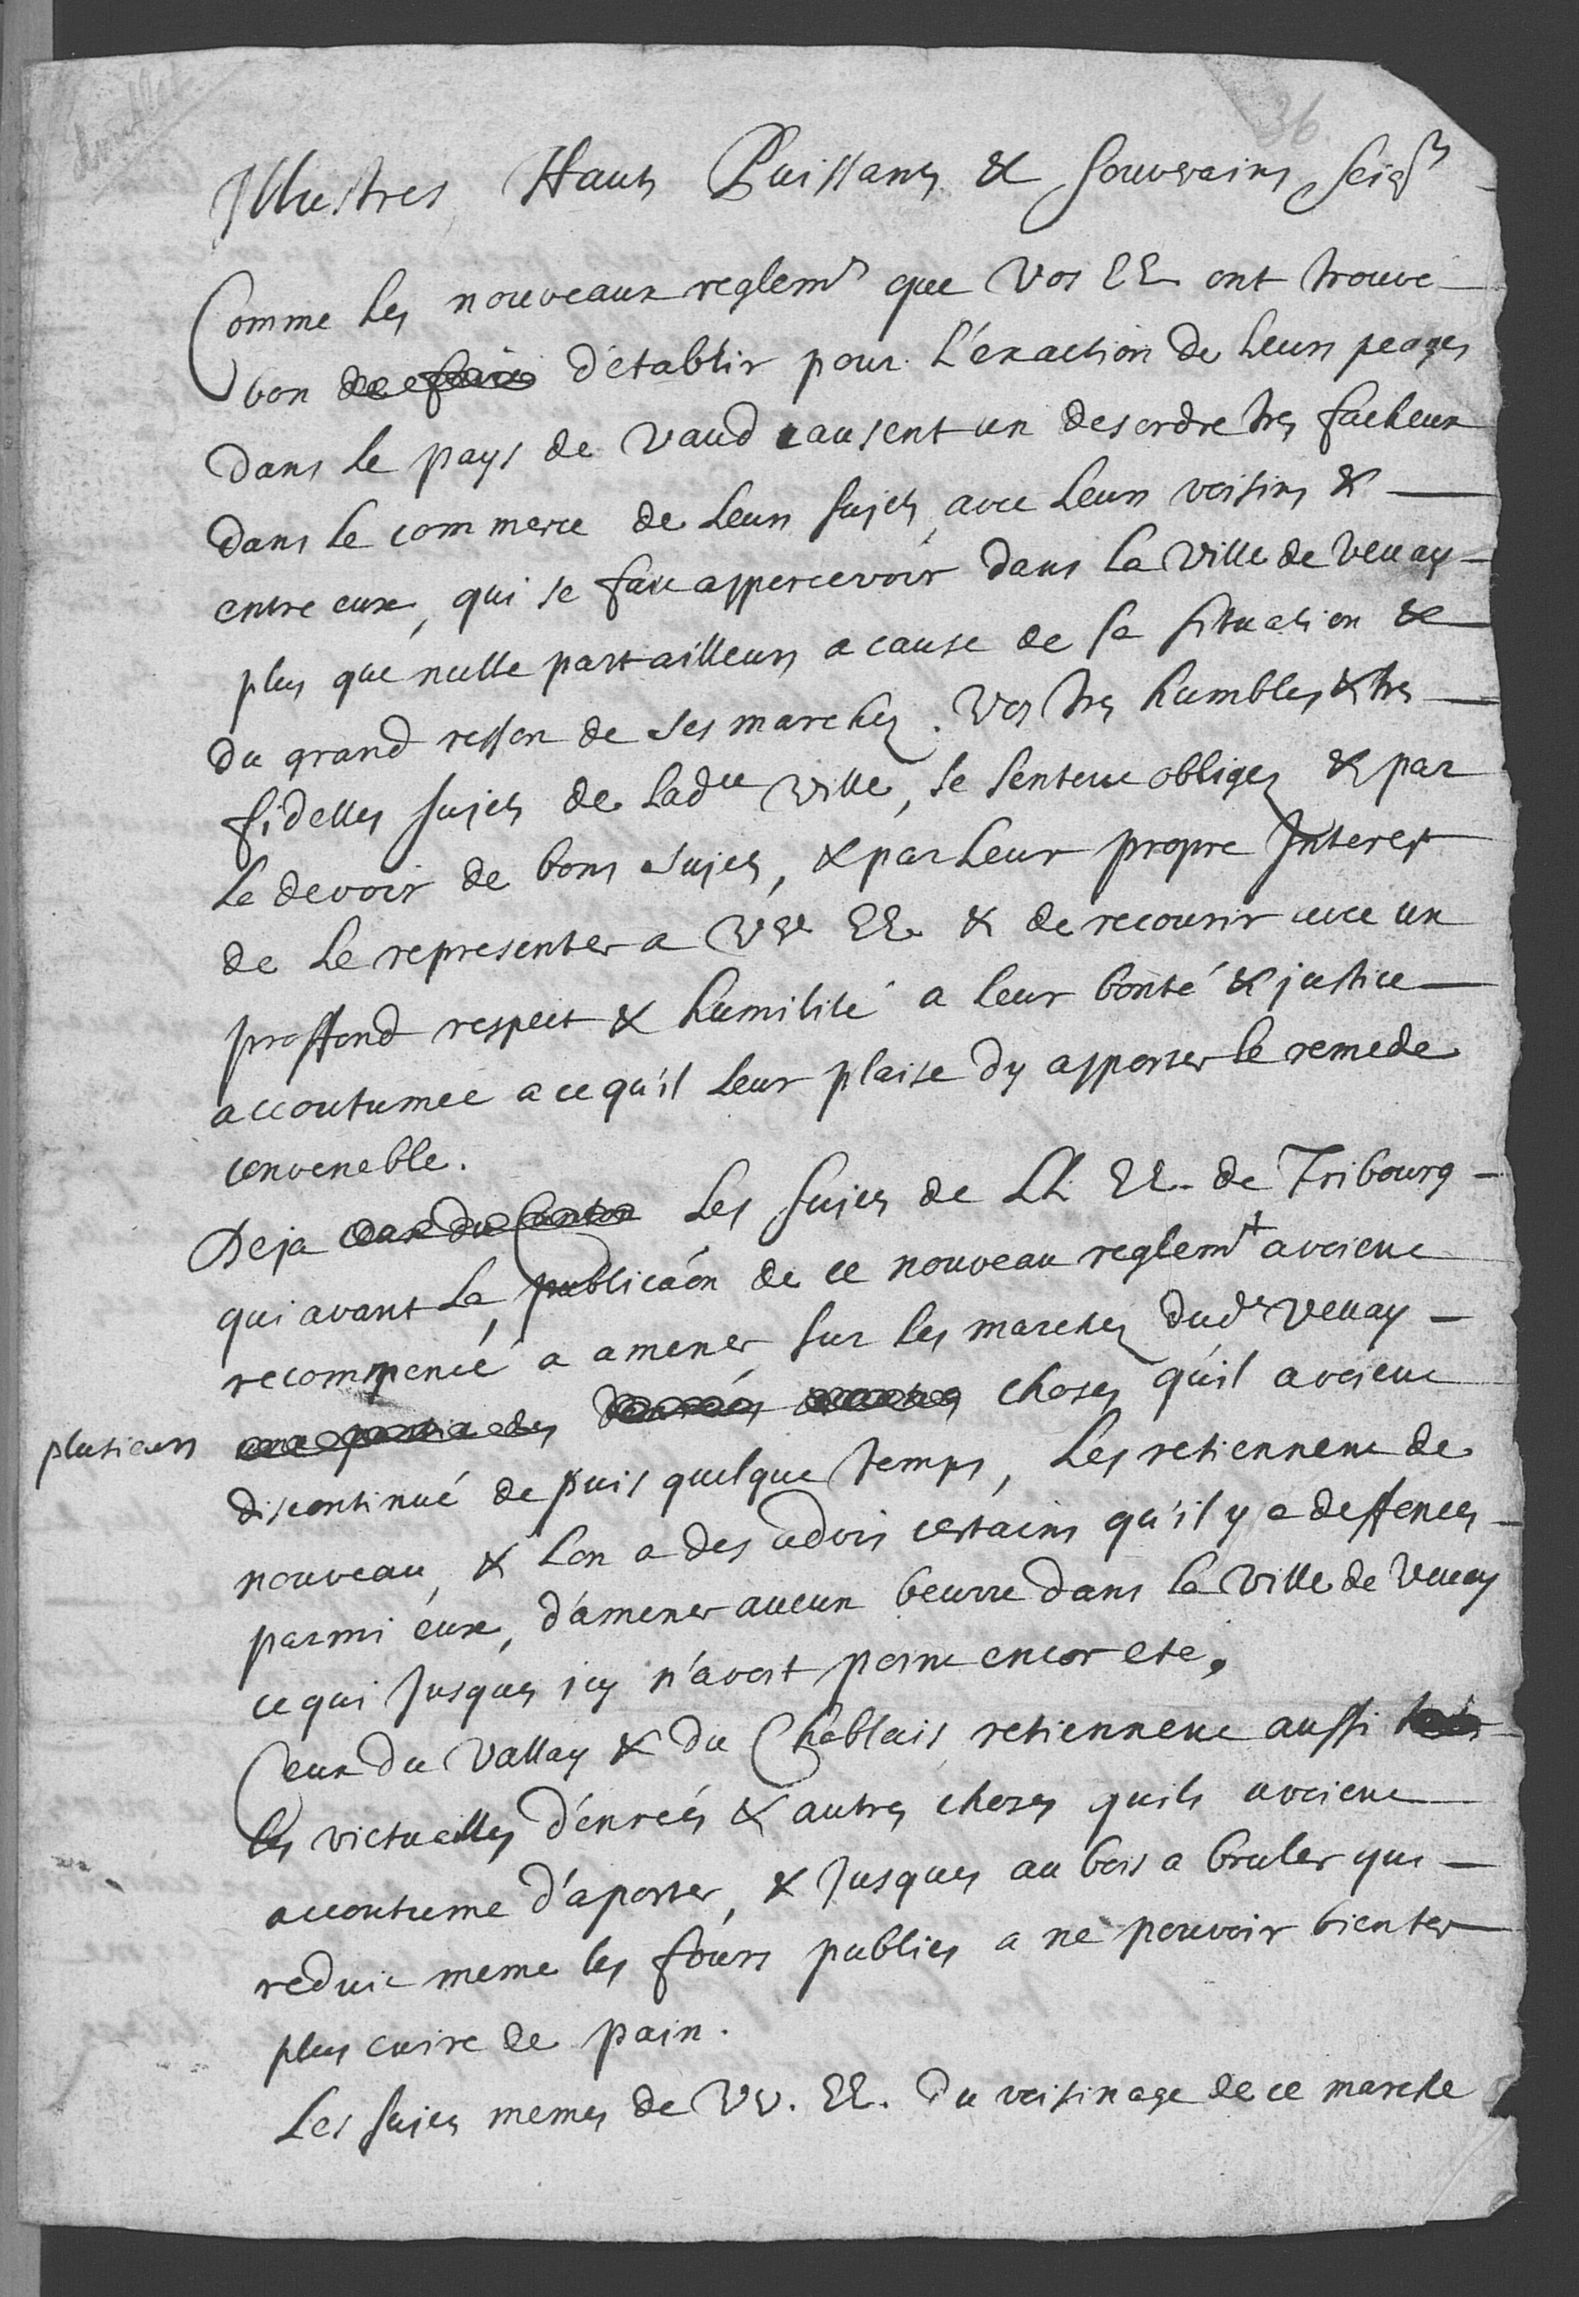 36
Jllustres Hauts Puissants & Souverains Seigrs
Comme les nouveaux reglemts que Vos EE ont trouvé
bon de faire d'établir pour l'exaction de leurs peages
dans le pays de Vaud causent un desordre tres facheux
dans le commerce de leurs sujets avec leurs voisins &
entre eux, qui se fait appercevoir dans la Ville de Vevay
plus que nulle part ailleurs a cause de sa situation &
du grand ressort de ses marchez. Vos tres humbles & tres
fidelles sujets de ladte Ville, se sentent obligez & par
le devoir de bons sujets, & par leur propre Jnterest
de le representer a VVs EE & de recourir avec un
proffond respect & humilité a leur bonté & justice
accoutumée a ce qu'il leur plaise d'y apporter le remede
convenable.
Deja ceux du Canton les sujets de LL. EE. de Fribourg
qui avant la publicaon de ce nouveau reglemt avoient
recommencé a amener sur les marchez dudt Vevay
plusieurs une partie des denrées choses qu'il avoient
discontinué depuis quelque temps, les retiennent de
nouveau, & l'on a des advis certains qu'il y a deffences
parmi eux, d'amener aucun beurre dans la Ville de Vevay
ce qui Jusques icy n'avoit point encor eté.
Ceux du Vallay & du Chablais retiennent aussi
les victuailles d'enreés & autres choses quils avoient
accoutume d'aporter, & Jusques au bois a bruler qui
reduit meme les fours publics a ne pouvoir bientot
plus cuire de pain.
Les sujets memes de VV. EE. du voisinage de ce marche